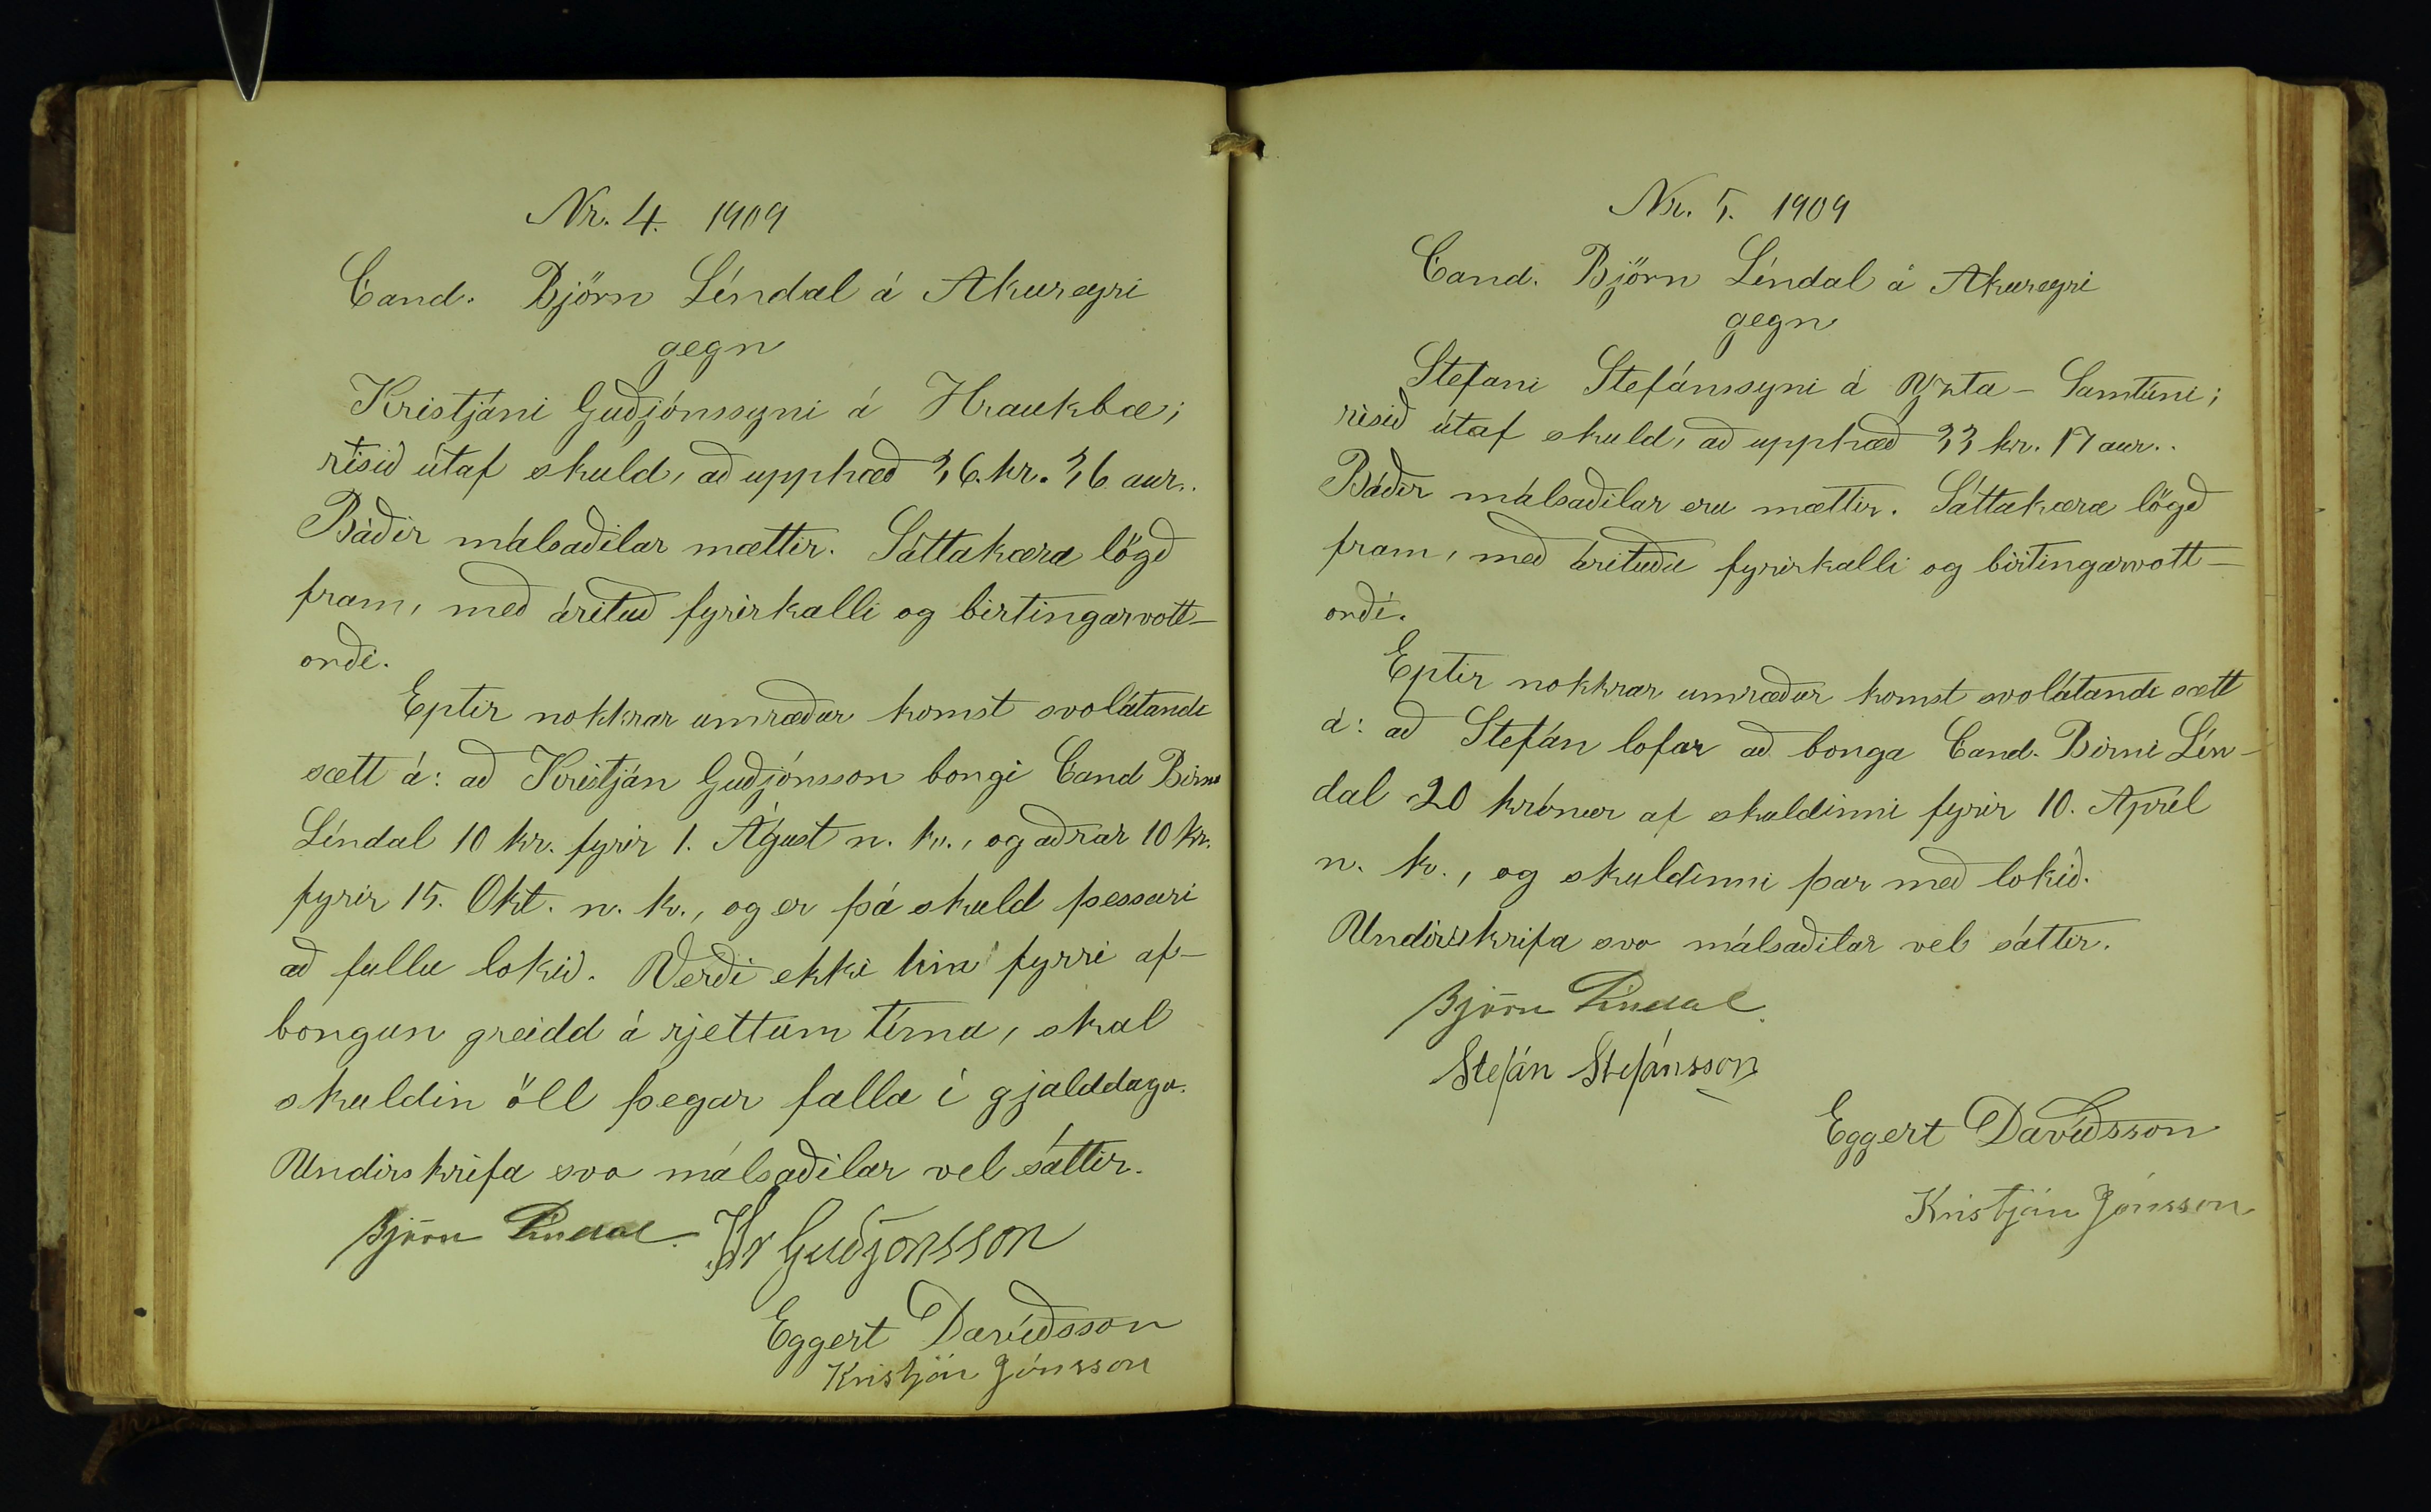 Nr. 4. 1909
Cand. Björn Líndal á Akureyri
gegn
Kristjáni Guðjónssyni á Hraukbæ;
risið útaf skuld, að upphæð 36. kr. 36 aur..
Báðir málsaðilar mættir. Sáttakæra lögð
fram, með árituð fyrirkalli og birtingarvott-
orði.
Eptir nokkrar umræður komst svolátandi
sætt á: að Kristján Guðjónsson borgi Cand Birni
Líndal 10 kr. fyrir 1. Ágúst n. k., og aðrar 10 kr.
fyrir 15. Okt. n. k., og er þá skuld þessari
að fullu lokið. Verði ekki hin fyrri af-
borgun greidd á rjettum tíma, skal
skuldin öll þegar falla í gjalddaga.
Undirskrifa svo málsaðilar vel sáttir.
Björn Líndal. Kr Guðjónsson
Eggert Davíðsson
Kristján Jónsson
Nr. 5. 1909
Cand. Björn Líndal á Akureyri
gegn
Stefani Stefánssyni á Yzta-Samtúni;
risið útaf skuld, að upphæð 33 kr. 17 aur..
Báðir málsaðilar eru mættir. Sáttakæra lögð
fram, með árituðu fyrirkalli og birtingarvott-
orði.
Eptir nokkrar umræður komst svolátandi sætt
á: að Stefán lofar að borga Cand. Birni Lín-
dal 20 krónur af skuldinni fyrir 10. Apríl
n. k., og skuldinni þar með lokið.
Undirskrifa svo málsaðilar vel sáttir.
Björn Líndal.
Stefán Stefánsson
Eggert Davíðsson
Kristján Jónsson